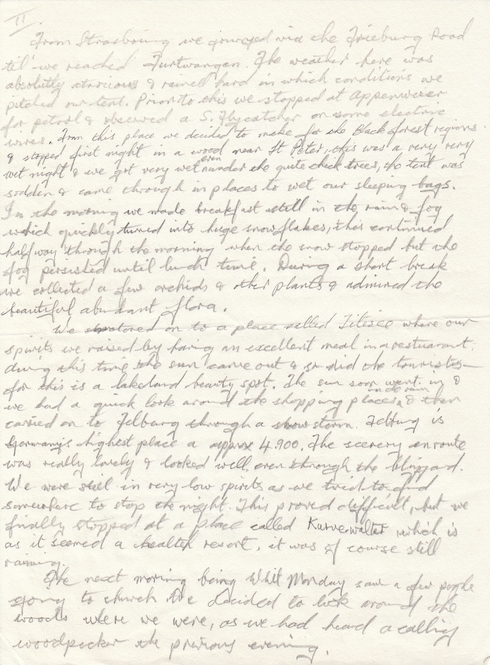 II.
From Strasbourg we journeyed via the Frieburg Road
til' we reached Furtwangen. The weather here was
absolutly atrocious & rained hard in which conditions we
pitched our tent. Prior to this we stopped at Appenweier
for petrol & observed a S. Flycatcher on some electric
wires. From this place we decided to make for the Black forest regions
& stopped first night in a wood near St Peter, this was a very very
wet night & we got very wet even under the quite thick trees, the tent was
sodden & came through in places to wet our sleeping bags.
In the morning we made breakfast still in the rain & fog
which quickly turned into huge snowflakes, this continued
half way through the morning when the snow stopped but the
fog persisted until lunch time. During a short break
we collected a few orchids & other plants & admired the
beautiful abundant flora.
We motored on to a place called Titisee where our
spirits we raised by having an excellent meal in a restaurant.
during this time the sun came out & so did the tourists-
for this is a lakeland beauty spot. The sun soon went in &
we had a quick look around the shopping places, & then
carried on to Felburg through a snow storm. Felburg is
Germany's highest place a approx 4.900. The scenery enroute
was really lovely & looked well even through the blizzard.
We were still in very low spirits as we tried to find
somewhere to stop the night. This proved difficult, but we
finally stopped at a place called which is
as it seemed a health resort, it was of course still
raining.
The next morning being Whit Monday saw a few people
going to church. We decided to look around the
woods where we were, as we had heard a calling
woodpecker the previous evening.